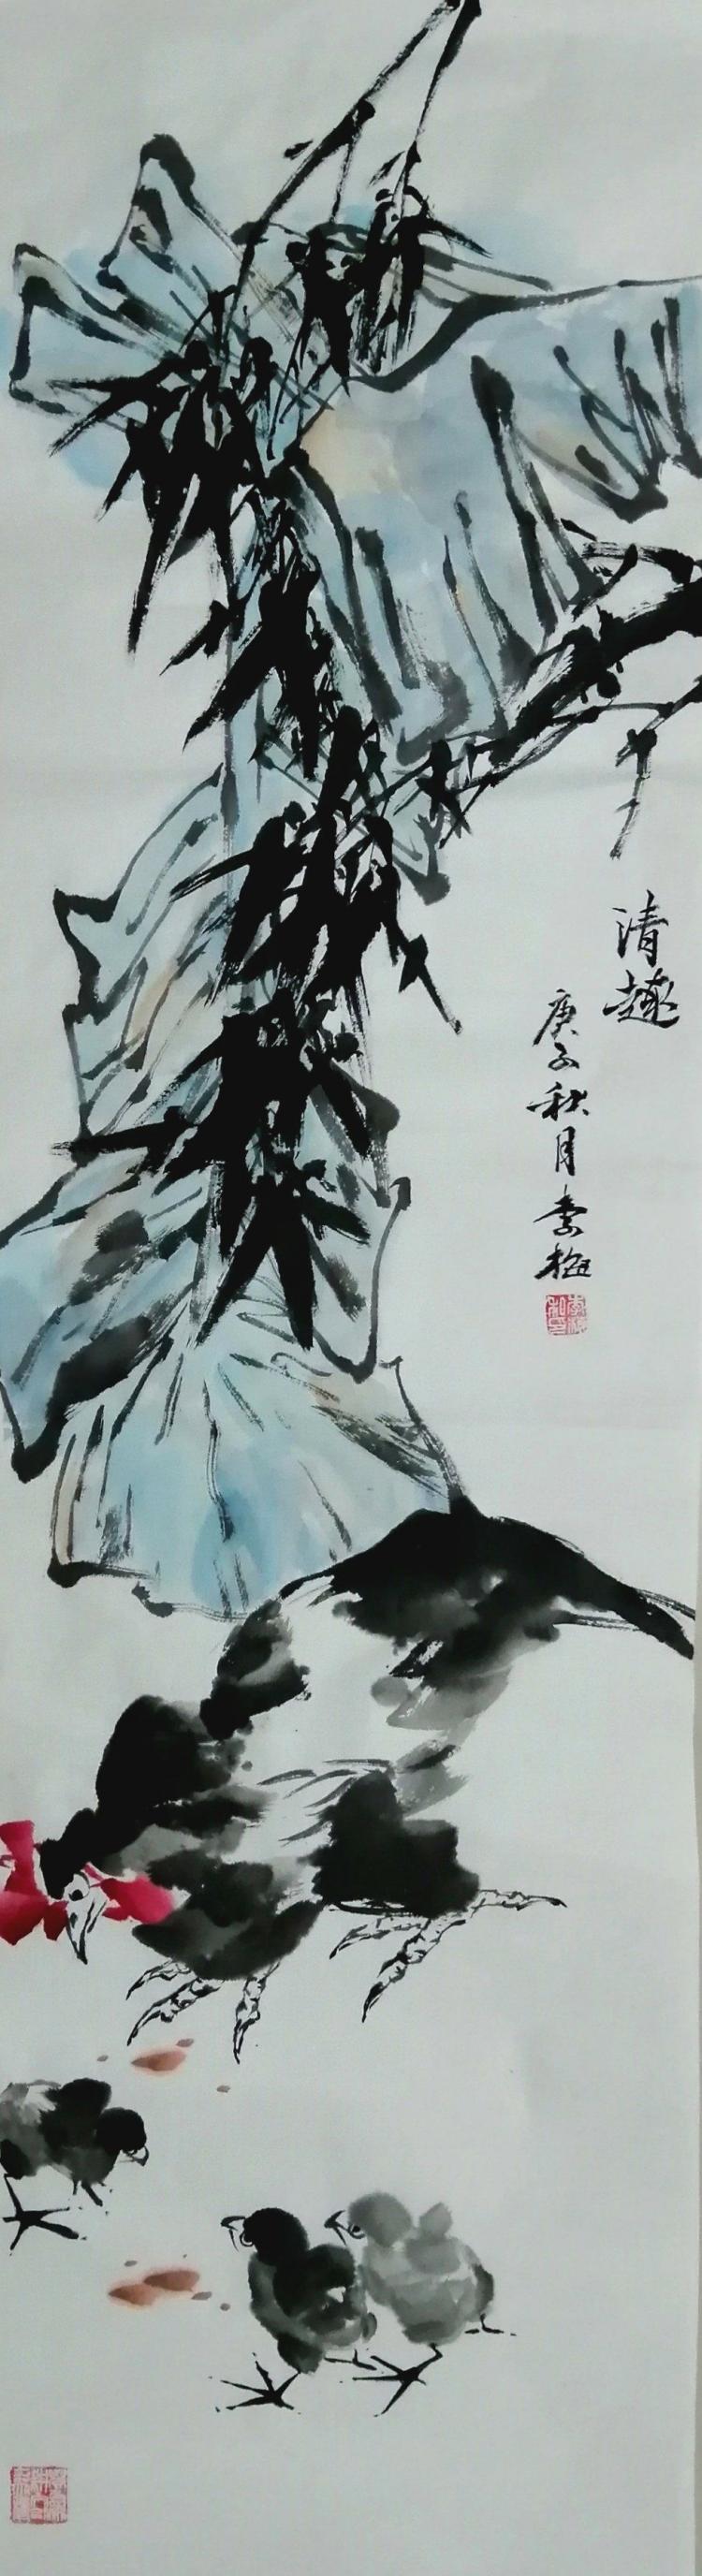 清趣
庚子秋月李梅